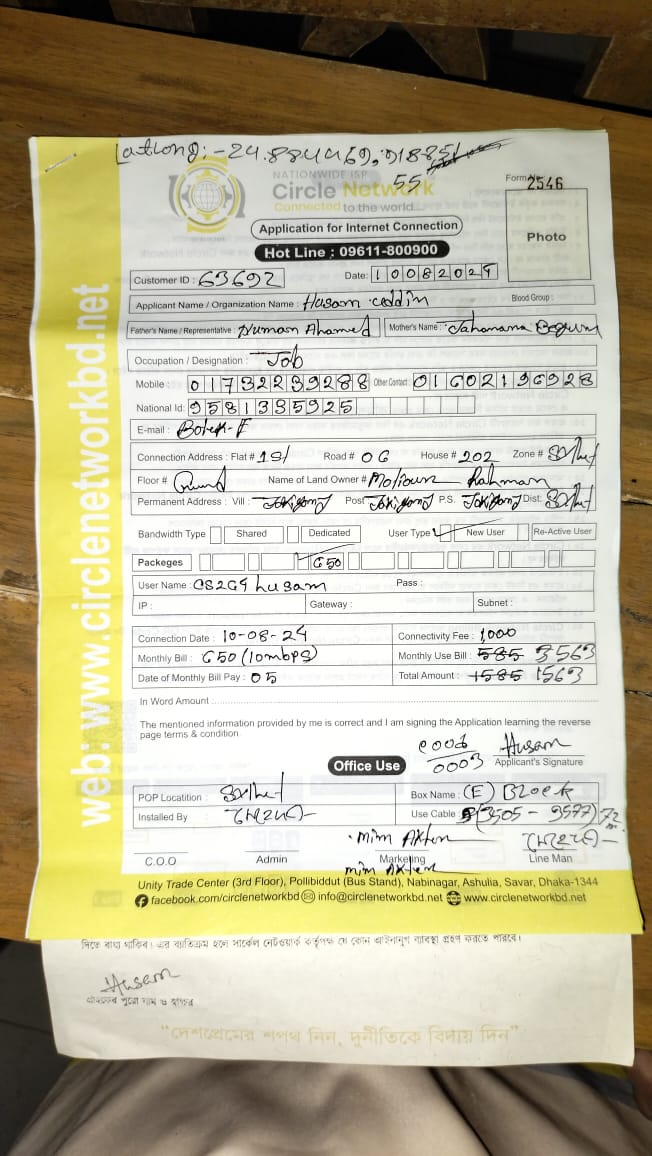 LatLong:-24.884469,91.885
55
NATIONWIDE ISP
Circle Network
Connected to the world...
Form No. 2546
Application for Internet Connection
Hot Line : 09611-800900
Photo
Customer ID : 63692 Date: 10082024
Applicant Name / Organization Name : Husam uddin Blood Group :
Father's Name / Representative : Numan Ahamed Mother's Name : Jahanara Begum
Occupation / Designation : Job
Mobile : 01732239288 Other Contact : 01602196928
National Id: 9581335925
E-mail : Botek-E
Connection Address : Flat # 19/ Road # 06 House # 202 Zone # Sylhet
Floor # Name of Land Owner # Rahman
Permanent Address : Vill : Jokigonj Post Jokigonj P.S. Jokigonj Dist: Sylhet
Bandwidth Type Shared Dedicated User Type New User Re-Active User
Packeges G50
User Name : CS2G4husam Pass :
IP : Gateway : Subnet :
Connection Date : 10-08-24 Connectivity Fee : 1,000
Monthly Bill : G50 (10mbps) Monthly Use Bill : 585 3563
Date of Monthly Bill Pay : 05 Total Amount : 1585 1563
In Word Amount :
The mentioned information provided by me is correct and I am signing the Application learning the reverse
page terms & condition.
0003 Husam
Applicant's Signature
Office Use
POP Locatition : Sylhet Box Name : (E) Block
Installed By Use Cable : (3505 - 3577) 72m
mim Akter
C.O.O Admin Marketing Line Man
mim Akter
Unity Trade Center (3rd Floor), Pollibiddut (Bus Stand), Nabinagar, Ashulia, Savar, Dhaka-1344
facebook.com/circlenetworkbd info@circlenetworkbd.net www.circlenetworkbd.net
web: www.circlenetworkbd.net
দিতে বাধ্য থাকিব। এর ব্যতিক্রম হলে সার্কেল নেটওয়ার্ক কর্তৃপক্ষ যে কোন আইনানুগ ব্যবস্থা গ্রহণ করতে পারবে।
Husam
গ্রাহকের পুরো নাম ও স্বাক্ষর
“দেশপ্রেমের শপথ নিন, দুর্নীতিকে বিদায় দিন”